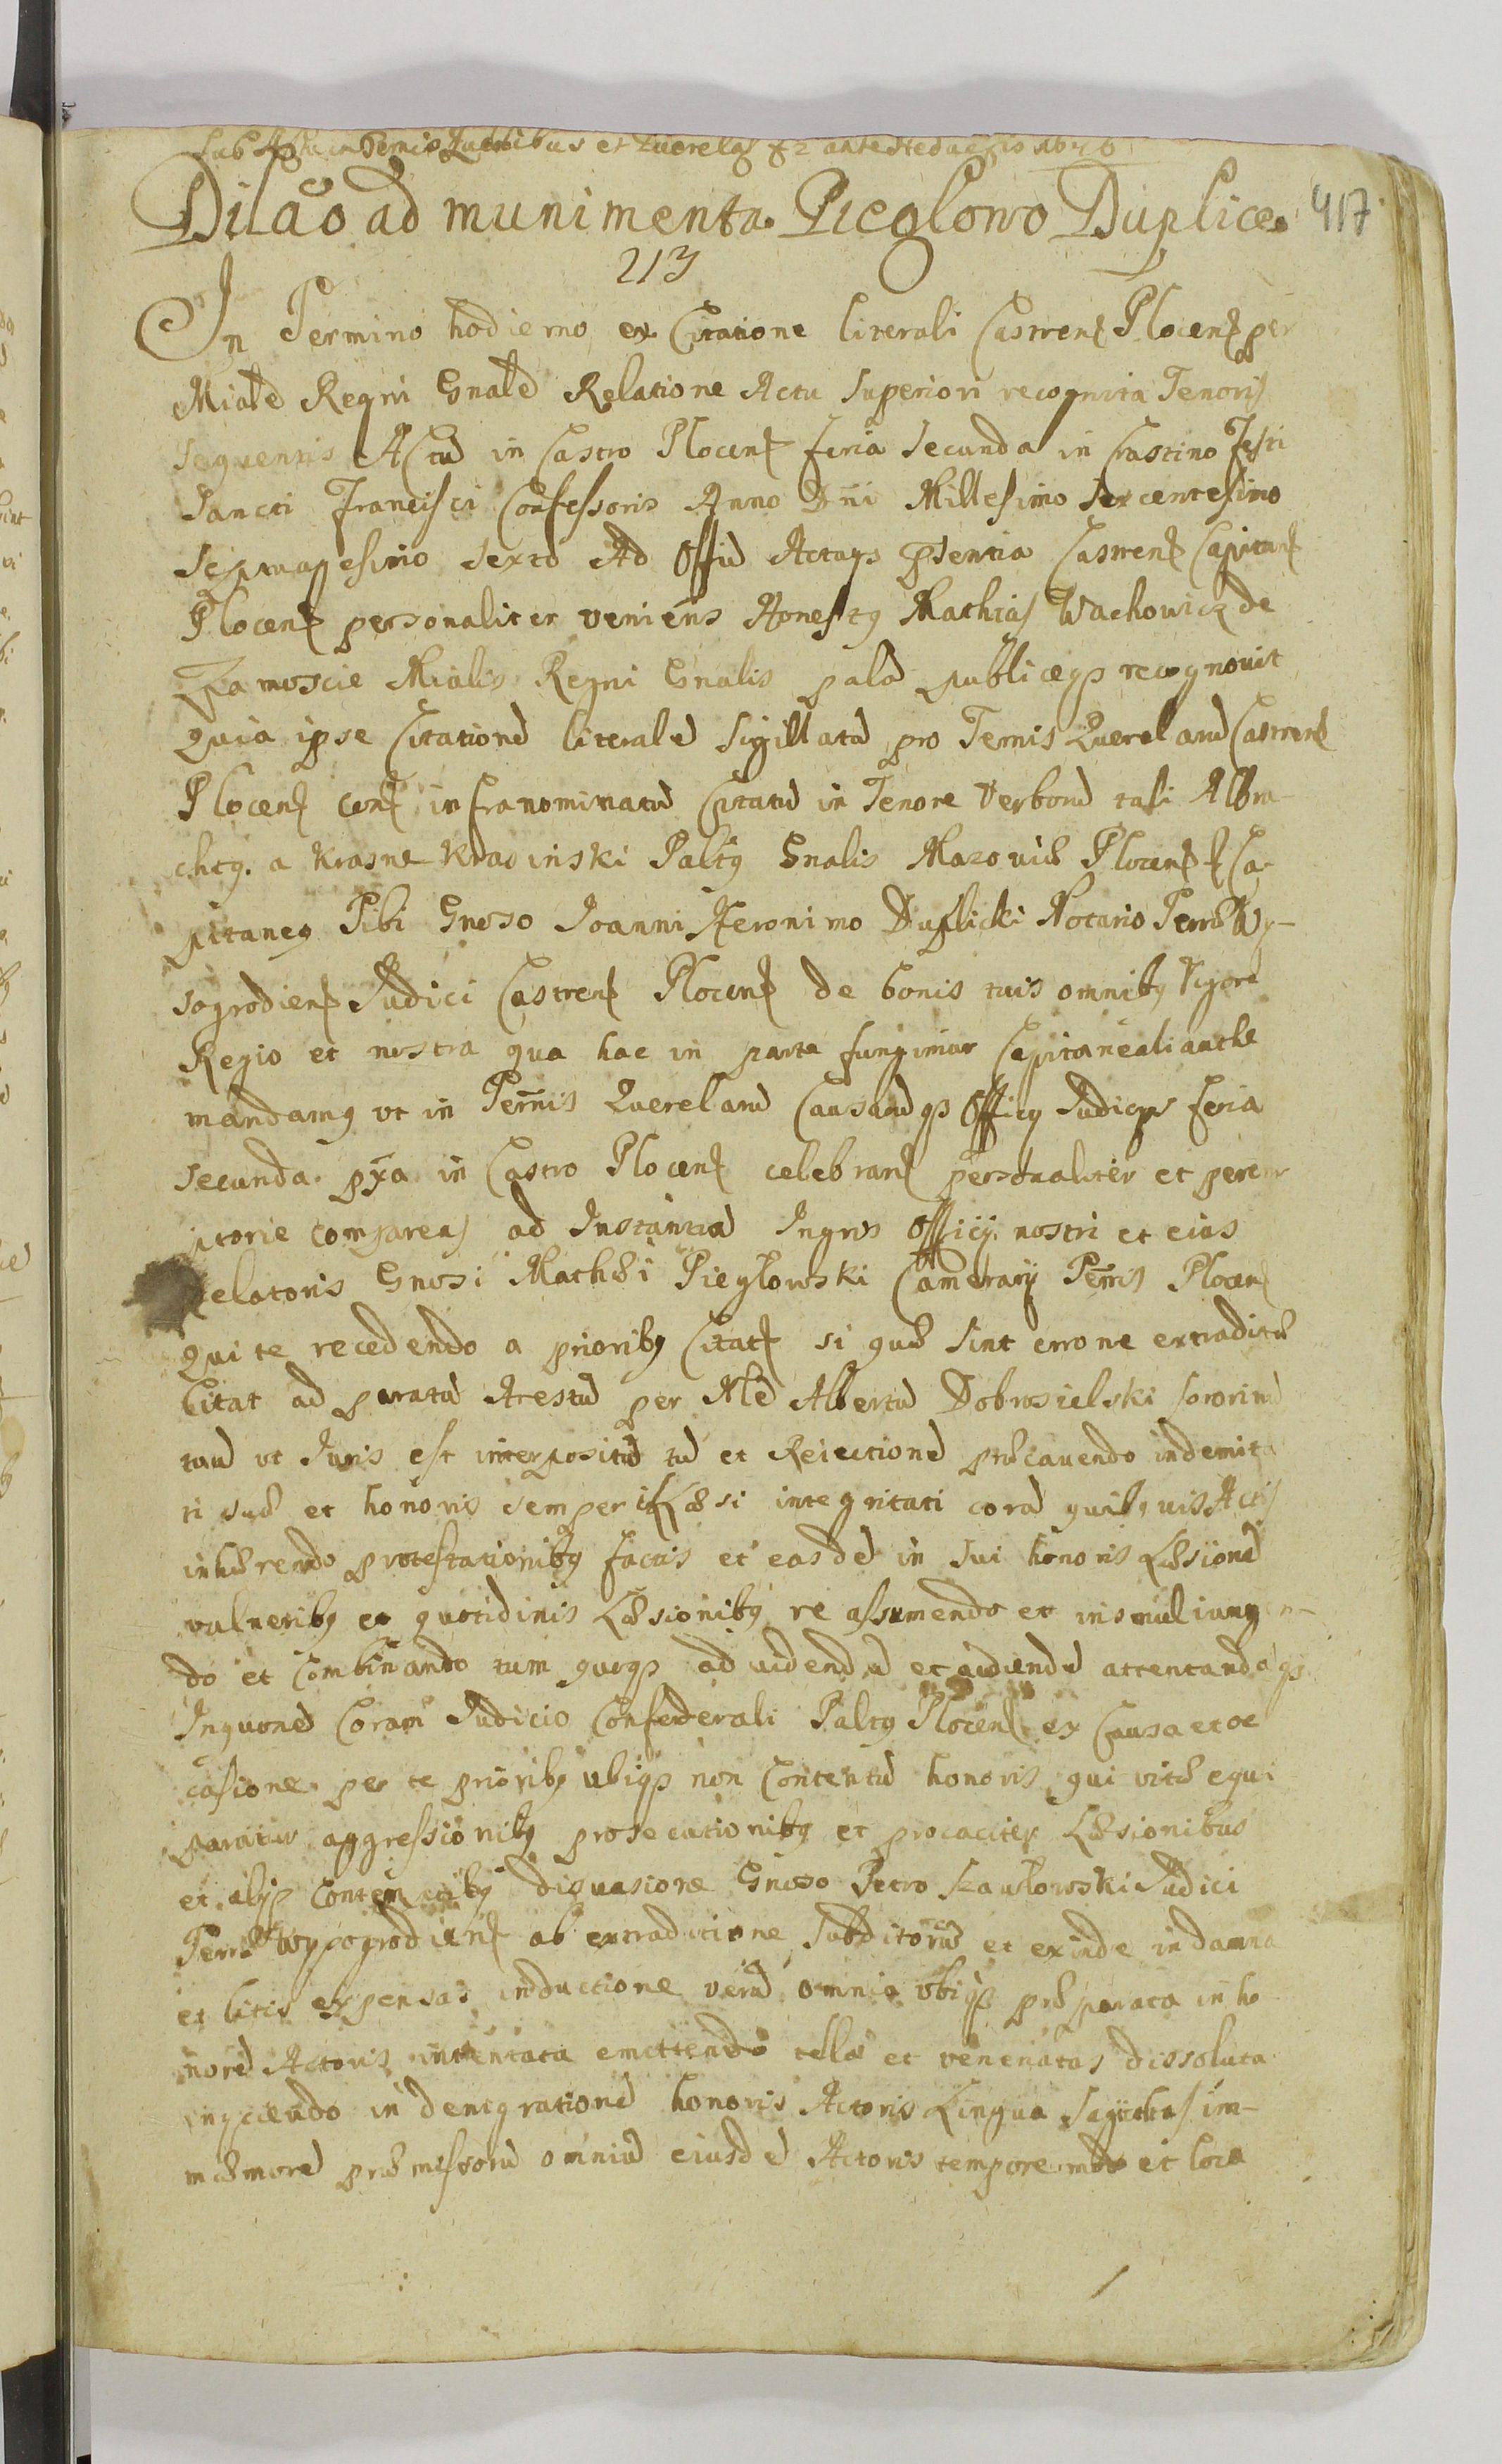 Sub Actu in Termis Quertibus et Querelas f 2 ante 1676
Dilao ad munimenta Pieglowo Duplice 417
213
In Termino hodierno ex Citatione literali Castrens Plocens per
Miale Regni Gnale Relatione Actu Superiori recognita Tenoris
Sequentis Actu in Castro Plocens feria Secunda in Crastino Festi
Sancti Francisci Confessoris Anno Dni Millesimo Sexcentesimo
Septuagesimo Sexto Ad Offiu Actaqз pSentia Castrens Capitans
Plocens personaliter veniens Honestq Mathias Wachowicz de
Zamoscie Mialis Regni Gnalis pala publiceqз recognovit
Quia ipse Citatione literale Sigillata pro Termis Querelaru Castrens
Plocens cons infranominatu Citatu in Tenore Verboru tali Albra-
chtq a Krasne Krasinski Paltq Gnalis Mazoviæ Plocens Ca-
pitaneq Tibi Gnoso Joanni Heronimo Duplicki Notario Terræ Wy-
sogrodiens Judici Castrens Plocens de bonis tuis omnibq Vigore
Regio et nostra qua hac in parte fungimur Capitaneali authe
mandamq vt in Termis Querelaru Causaruqз Officij Judicys feria
secunda pxa in Castro Plocens celebrans personaliter et perem
ptorie compareas ad Instantia Ingris Officij nostri et eius
elatoris Gnosi Mathæi Pieglowski Camerarij Terris Plocens
Qui te recedendo a prioribq Citat si quæ sint errone extraditæ
Citat ad paratu Arestu per Mle Albertu Dobrosielski sororinu
tuu vt Juris est interpositu tu et Reiectione præcavendo indemita
ti suæ et honoris semper illæsi integritati cora quibqvis Actis
inhærendo protestationibq factis et easde in Sui honoris Læsione
vulneribq et quotidinis Læsionibq re assumendo et insimul iungen-
do et Combinando tum quoqз ad videndu et audiendu attentandaqз
Coram Judicio Confederali Paltq Plocens ex Causa et oc
casione per te prioribq ubiqз non Contentu honoris qui vitæ equi
paratur aggressionibq prosecutionibq et procaciter Læsionibus
et alijs Contemptibq disvasione Gnoso Petro Szawlowski Judici
Terræ Wyssogrodiens ab extraditione Subditoru et exinde in damna
et litis expensas inductione veru omnia vbiqз præparata in ho
nore Actoris intentata emittendo tela et venenatas dissoluta
inijciendo in denigratione honoris Actoris Lingua Sagittas im-
memore præmissoru omniu eiusde Actoris tempore modo et loco